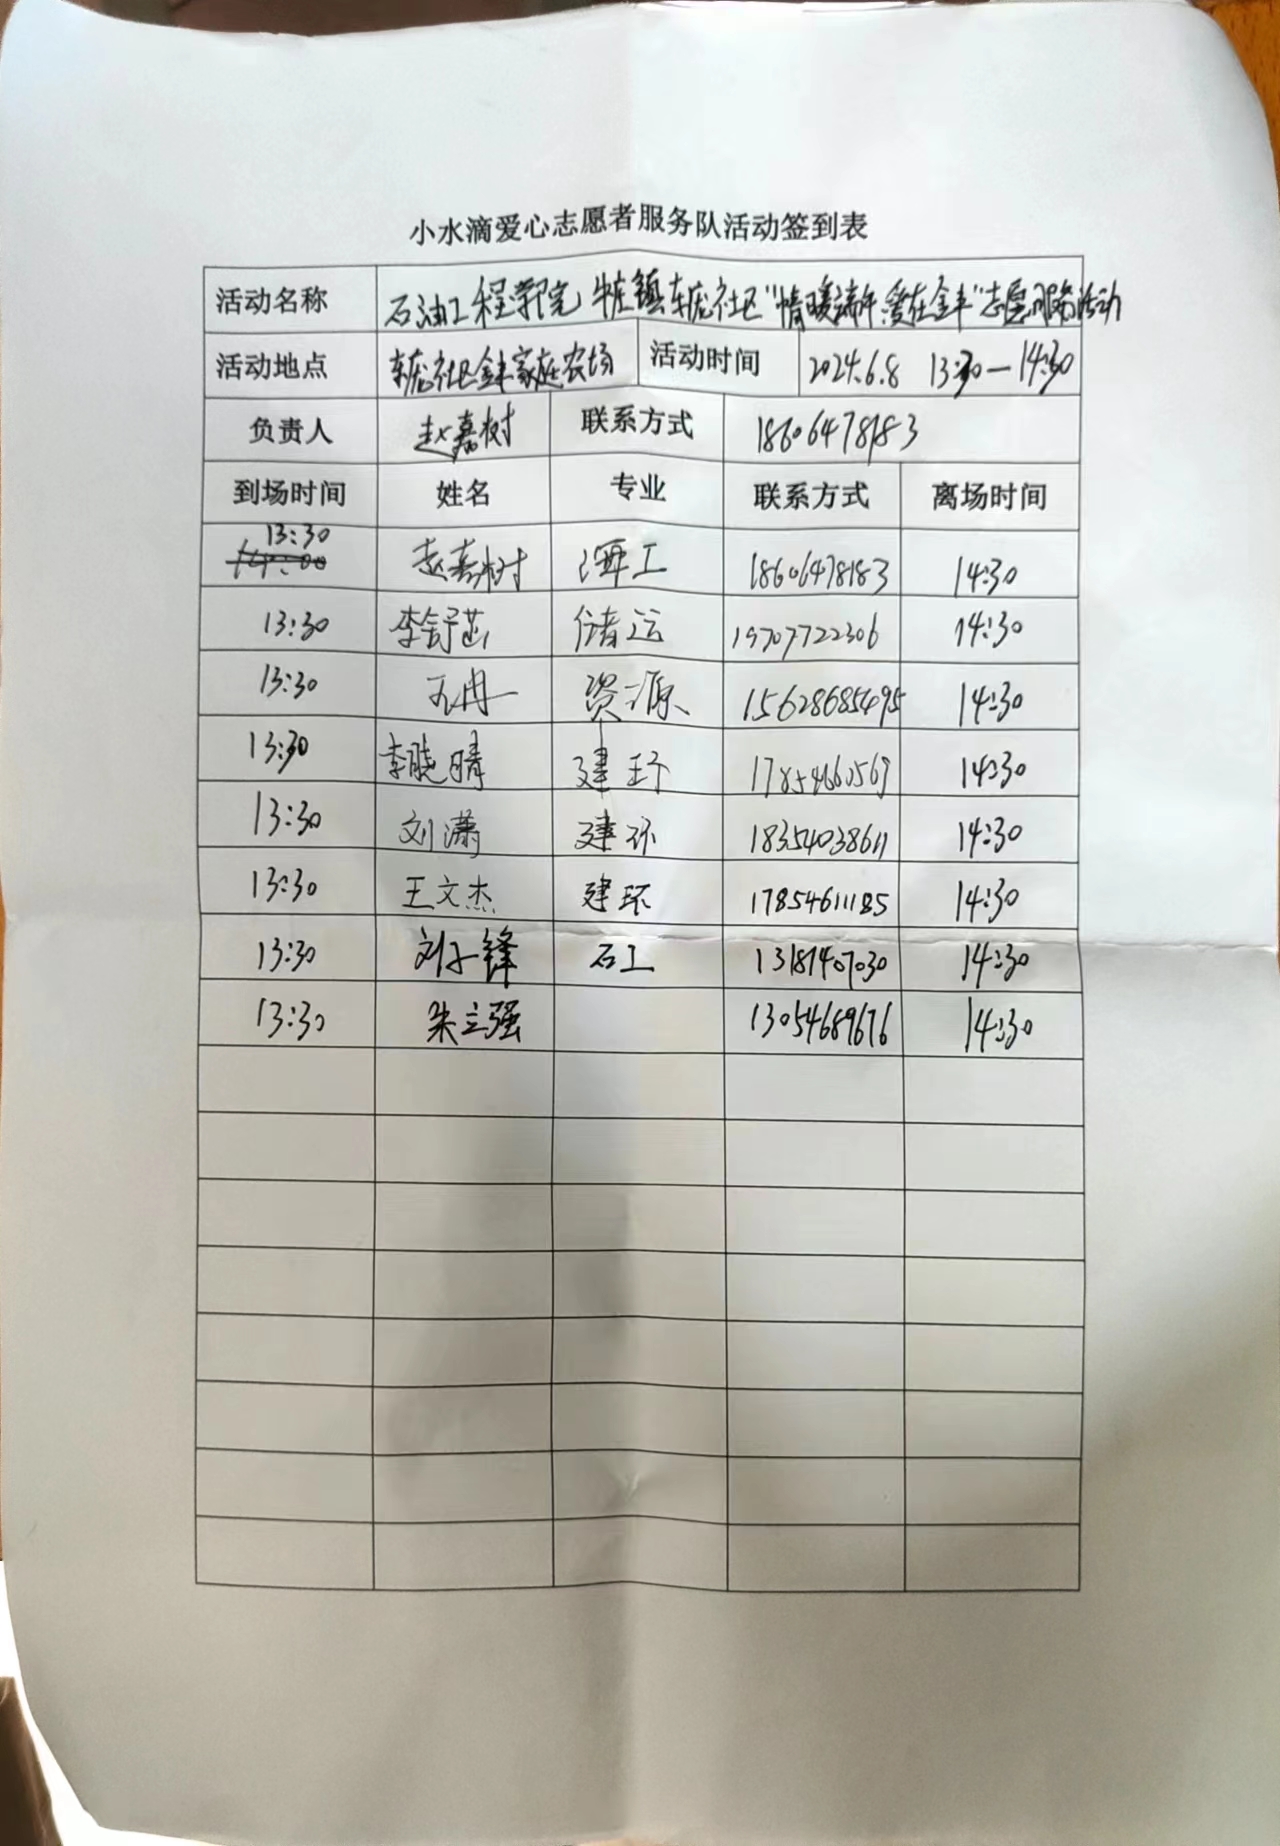 小水滴爱心志愿者服务队活动签到表
活动名称 石油工程学院 牛庄镇 社区"情暖端午 爱在金丰"志愿服务活动
活动地点 社区金丰家庭农场 活动时间 2024.6.8 13:30—14:30
负责人 赵嘉树 联系方式 18606478183
到场时间 姓名 专业 联系方式 离场时间
13:30 赵嘉树 海工 18606478183 14:30
13:30 李舒 储运 19707722306 14:30
13:30 冉 资源 15628685495 14:30
13:30 李晓晴 建环 17854660569 14:30
13:30 刘潇 建环 18354038611 14:30
13:30 王文杰 建环 17854611185 14:30
13:30 刘子锋 石工 13181407030 14:30
13:30 朱立强 13054689676 14:30